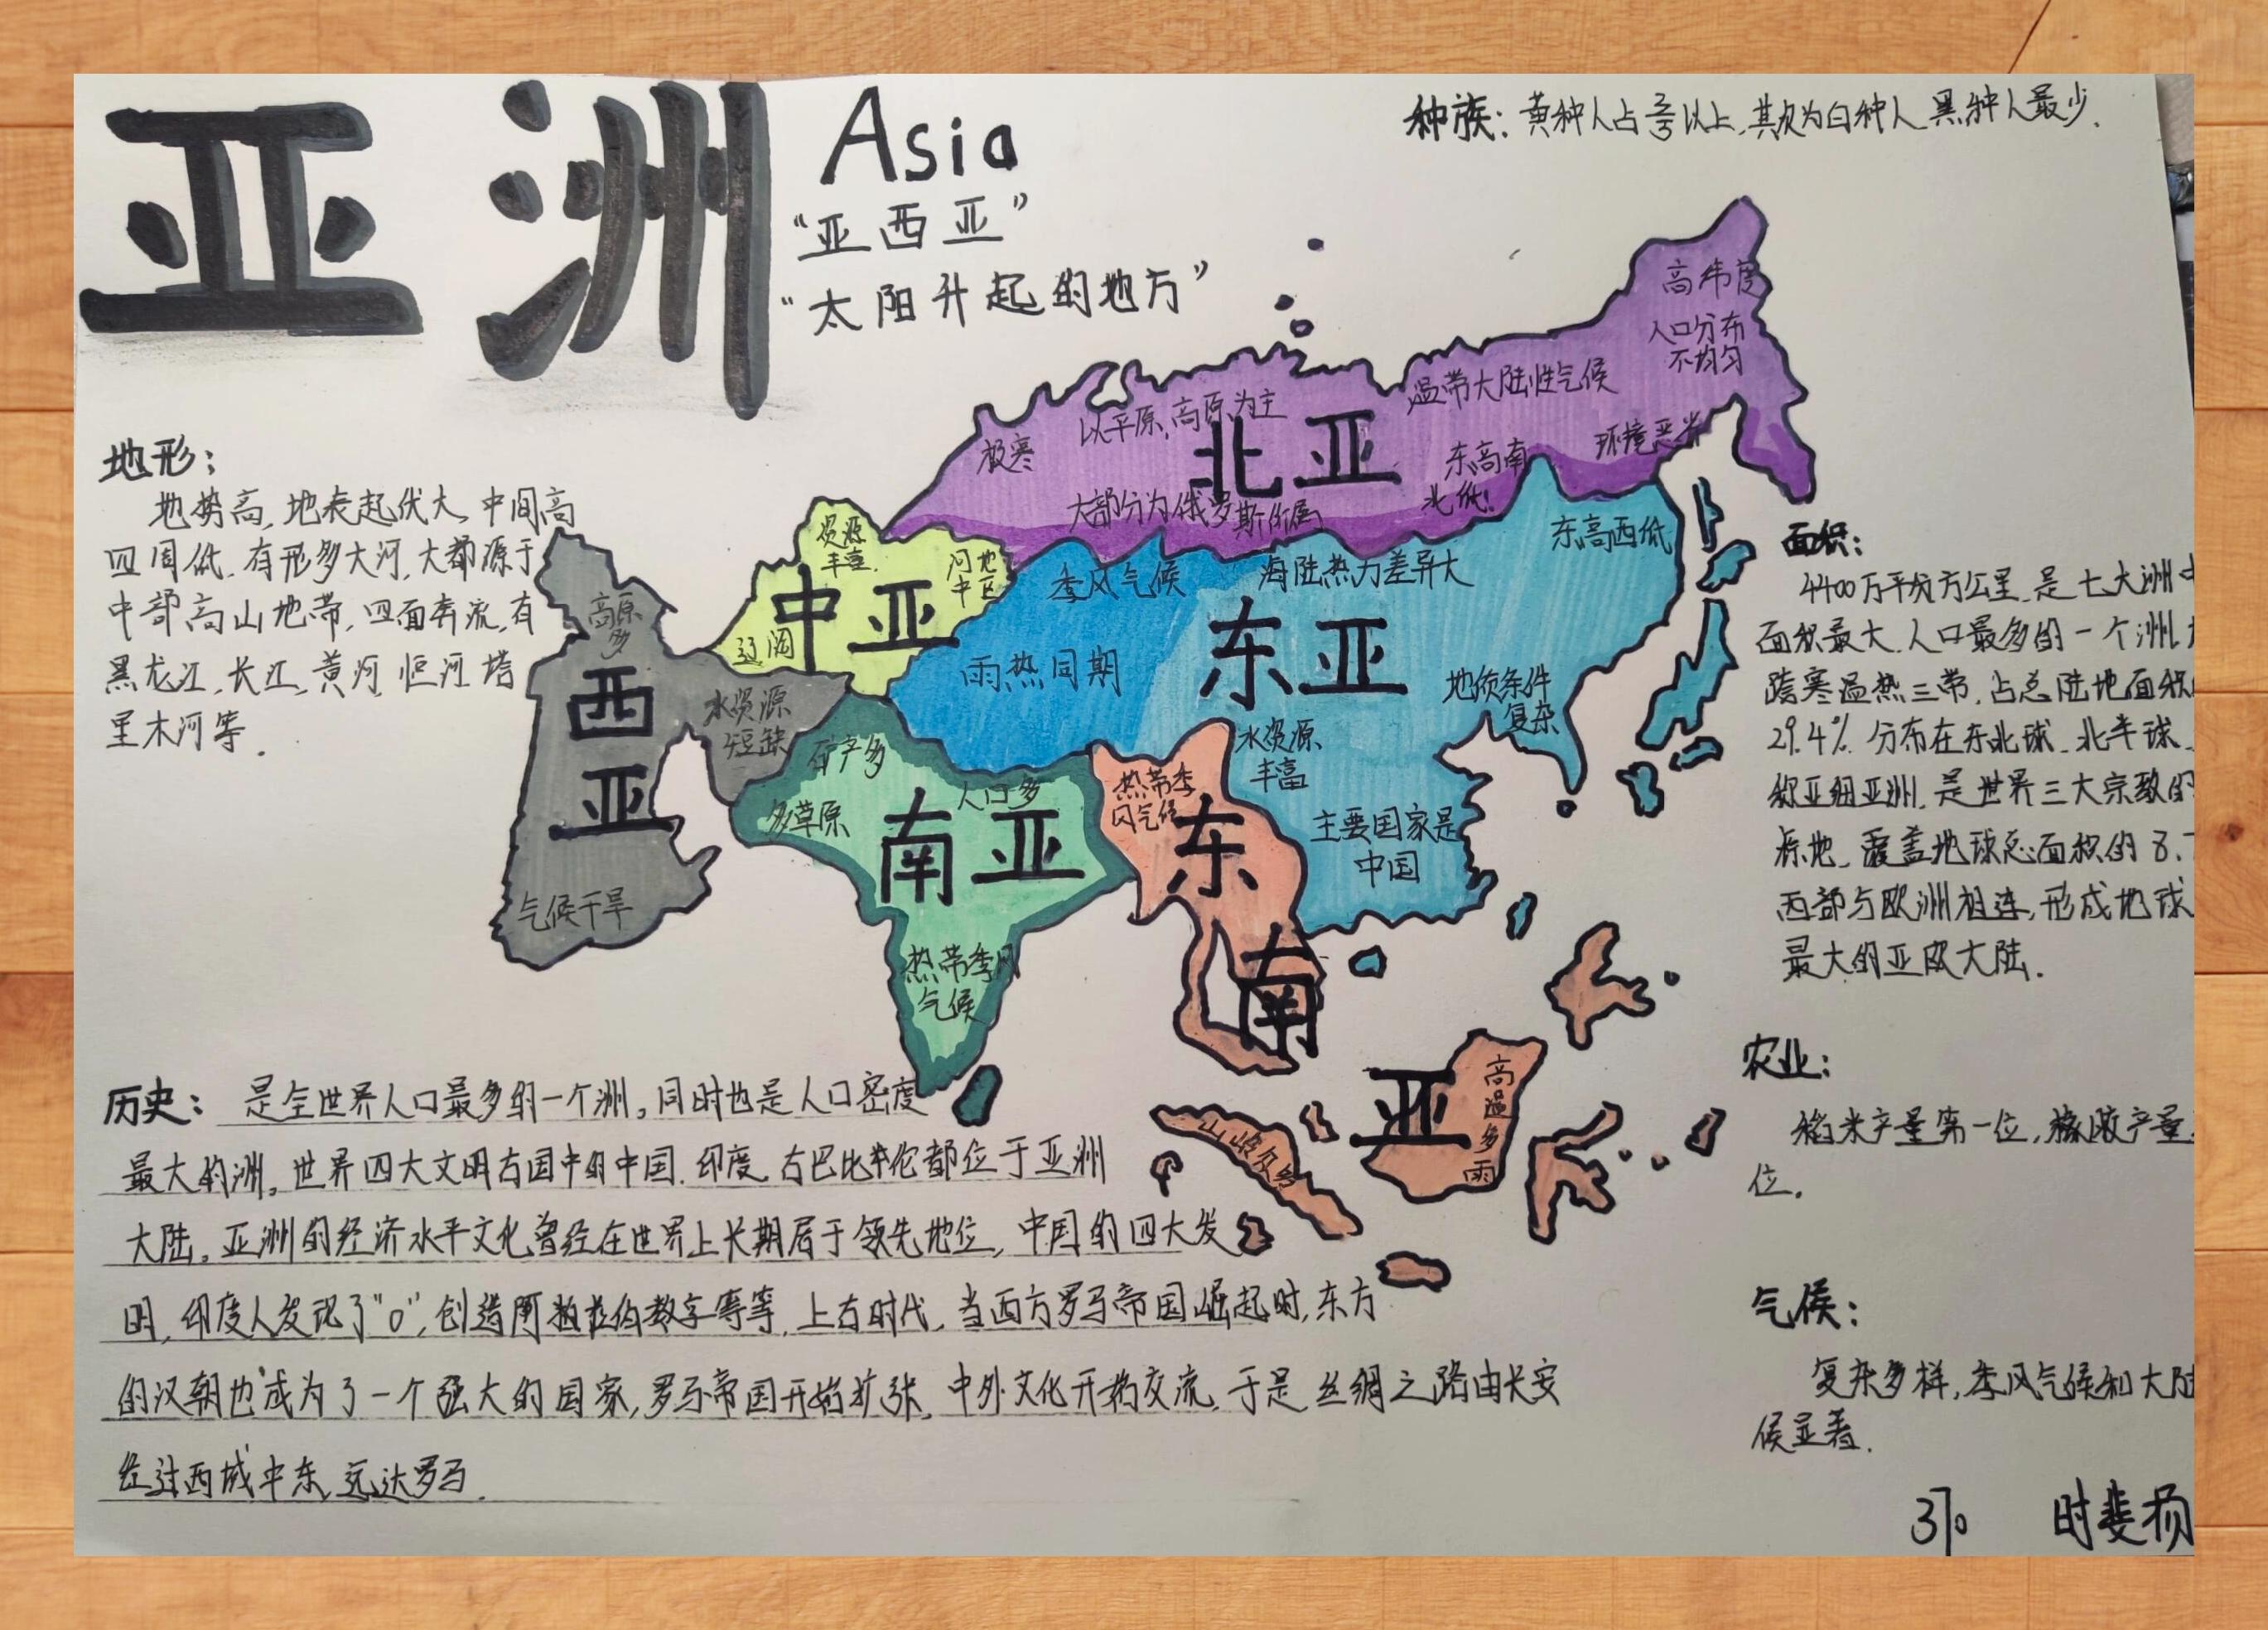 亚洲
Asia
“亚西亚”
“太阳升起的地方”
种族：黄种人占2/3以上,其次为白种人,黑种人最少.
地形：
地势高,地表起伏大,中间高
四周低.有形多大河,大都源于
中部高山地带,四面奔流,有
黑龙江,长江,黄河,恒河,塔
里木河等.
北亚
高纬度
人口分布
不均匀
温带大陆性气候
以平原,高原为主
极寒
东高南
北低!
大部分为俄罗斯所属
中亚
资源
丰富.
辽阔
东亚
季风气候
海陆热力差异大
东高西低
雨热同期
地质条件
复杂
水资源
丰富
主要国家是
中国
西亚
高原
多
水资源
短缺
气候干旱
南亚
矿产多
人口多
多草原
热带季风
气候
东南亚
热带季
风气候
高温多雨
面积：
4400万平方公里.是七大洲中
面积最大.人口最多的一个洲.
跨寒温热三带.占总陆地面积
29.4%.分布在东北球.北半球.
称亚细亚洲.是世界三大宗教的
原地.覆盖地球总面积的8.
西部与欧洲相连,形成地球
最大的亚欧大陆.
农业：
稻米产量第一位,橡胶产量
位.
气候：
复杂多样,季风气候和大陆
候显著.
历史：是全世界人口最多的一个洲。同时也是人口密度
最大的洲。世界四大文明古国中的中国.印度.古巴比伦都位于亚洲
大陆。亚洲的经济水平文化曾经在世界上长期居于领先地位,中国的四大发
明,印度人发现了“0”,创造阿拉伯数字等等.上古时代,当西方罗马帝国崛起时,东方
的汉朝也成为了一个强大的国家,罗马帝国开始扩张,中外文化开始交流,于是丝绸之路由长安
经过西域中东,远达罗马.
时斐